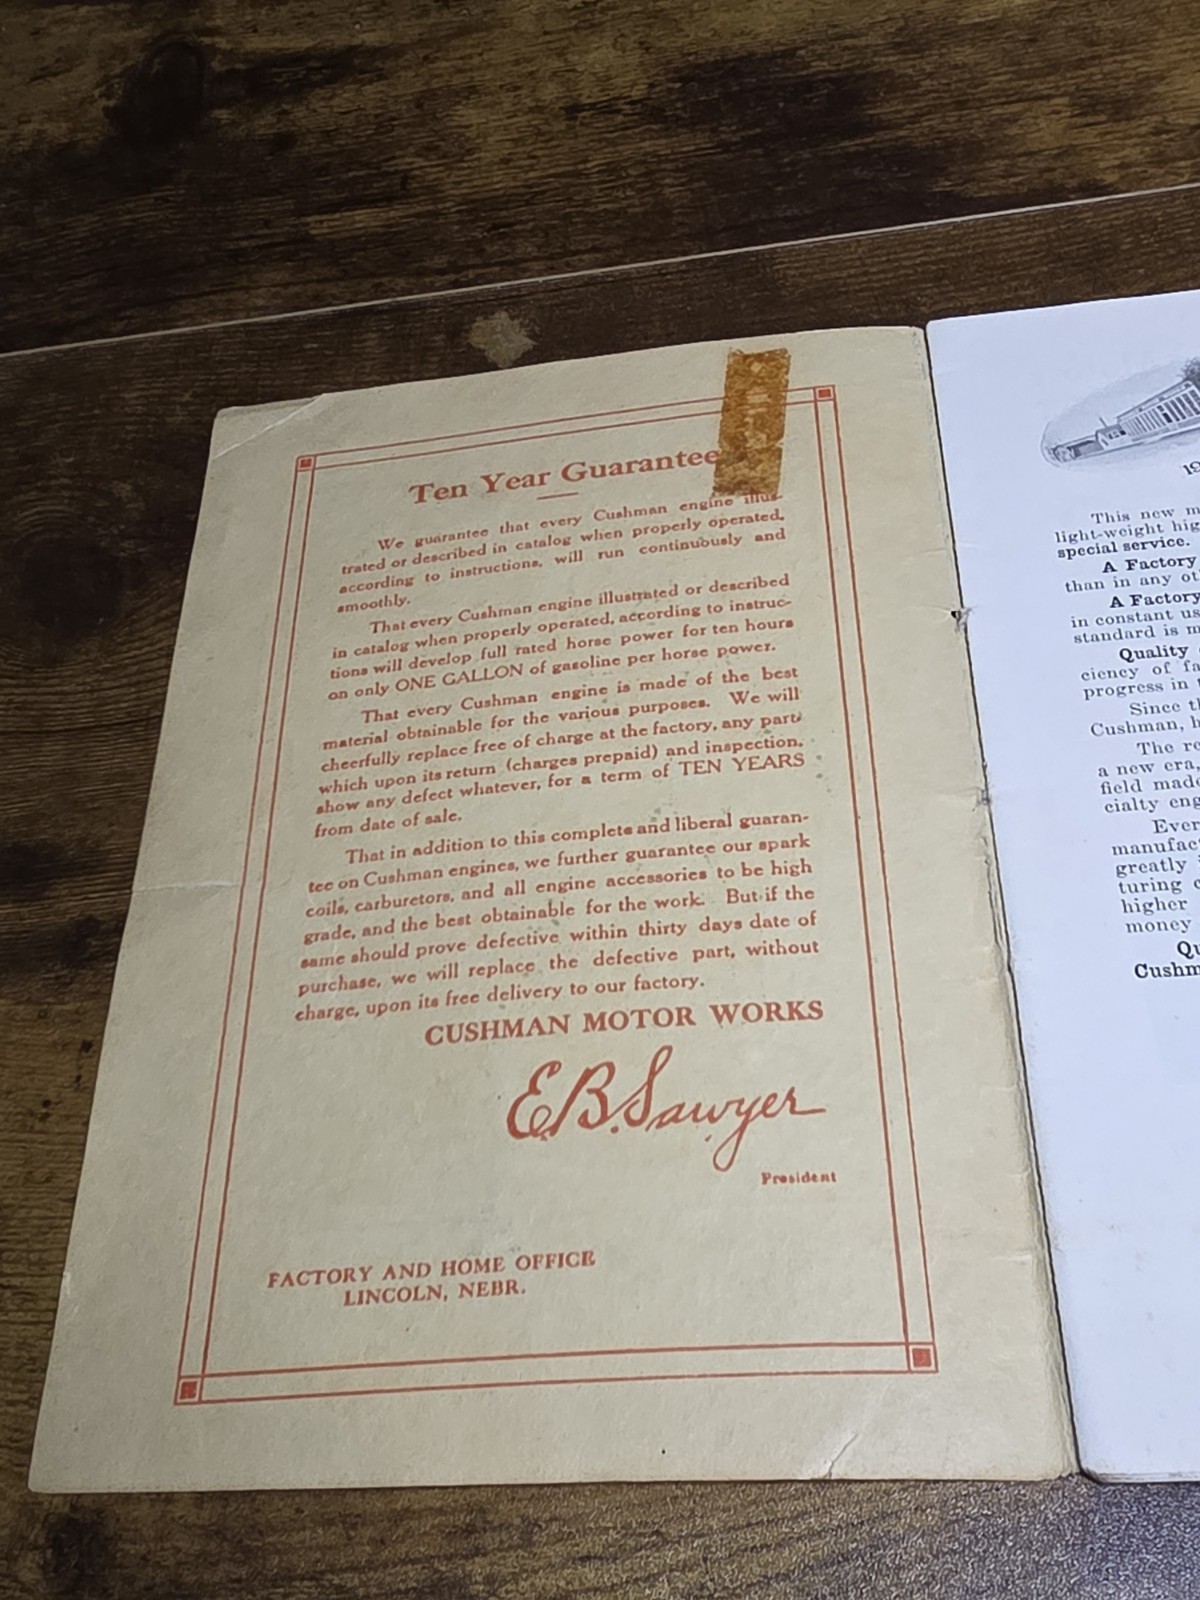 Ten Year Guarantee
We guarantee that every Cushman engine illus-
trated or described in catalog when properly operated,
according to instructions, will run continuously and
smoothly.
That every Cushman engine illustrated or described
in catalog when properly operated, according to instruc-
tions will develop full rated horse power for ten hours
on only ONE GALLON of gasoline per horse power.
That every Cushman engine is made of the best
material obtainable for the various purposes. We will
cheerfully replace free of charge at the factory, any part
which upon its return (charges prepaid) and inspection,
show any defect whatever, for a term of TEN YEARS
from date of sale.
That in addition to this complete and liberal guaran-
tee on Cushman engines, we further guarantee our spark
coils, carburetors, and all engine accessories to be high
grade, and the best obtainable for the work. But if the
same should prove defective within thirty days date of
purchase, we will replace the defective part, without
charge, upon its free delivery to our factory.
CUSHMAN MOTOR WORKS
E.B. Sawyer
President
FACTORY AND HOME OFFICE
LINCOLN, NEBR.
This new
light-weight
special service.
A Factory
than in any
A Factory
in constant
standard is
Quality
ciency of
progress in
Since
Cushman,
The
a new era,
field made
cialty
Ever
manufac
greatly
turing
higher
money
Cushm